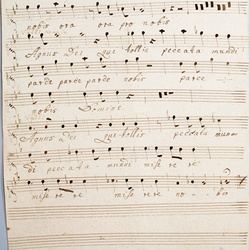 nobis ora ora pro nobis
Agnus Dei qui tollis peccata mundi
parce parce parce nobis parce
nobis Domine
Agnus Dei qui tollis peccata mun=
di peccata mundi mise re re
mise re re mise re re no - bis